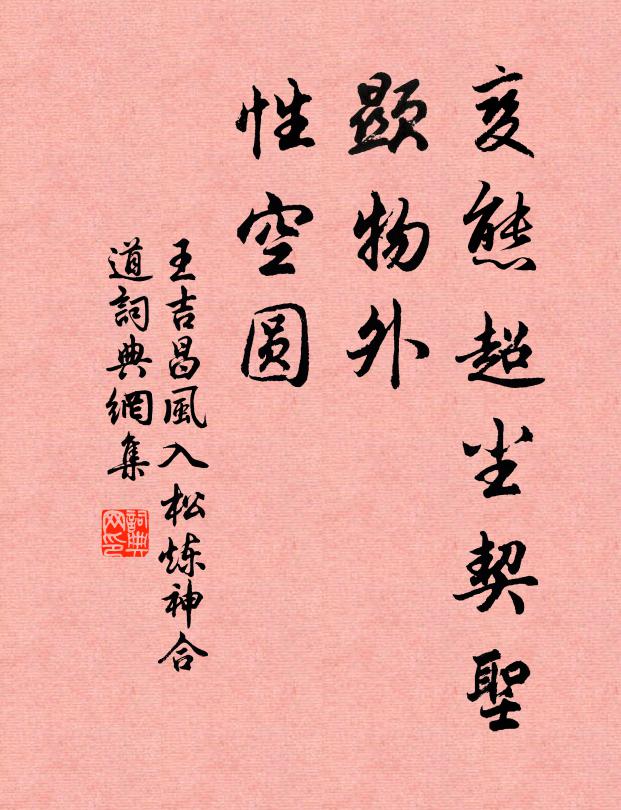 变態超尘契聖
顯物外
性空圆
王吉昌風入松炼神合
道詞典網集
詞典
网印